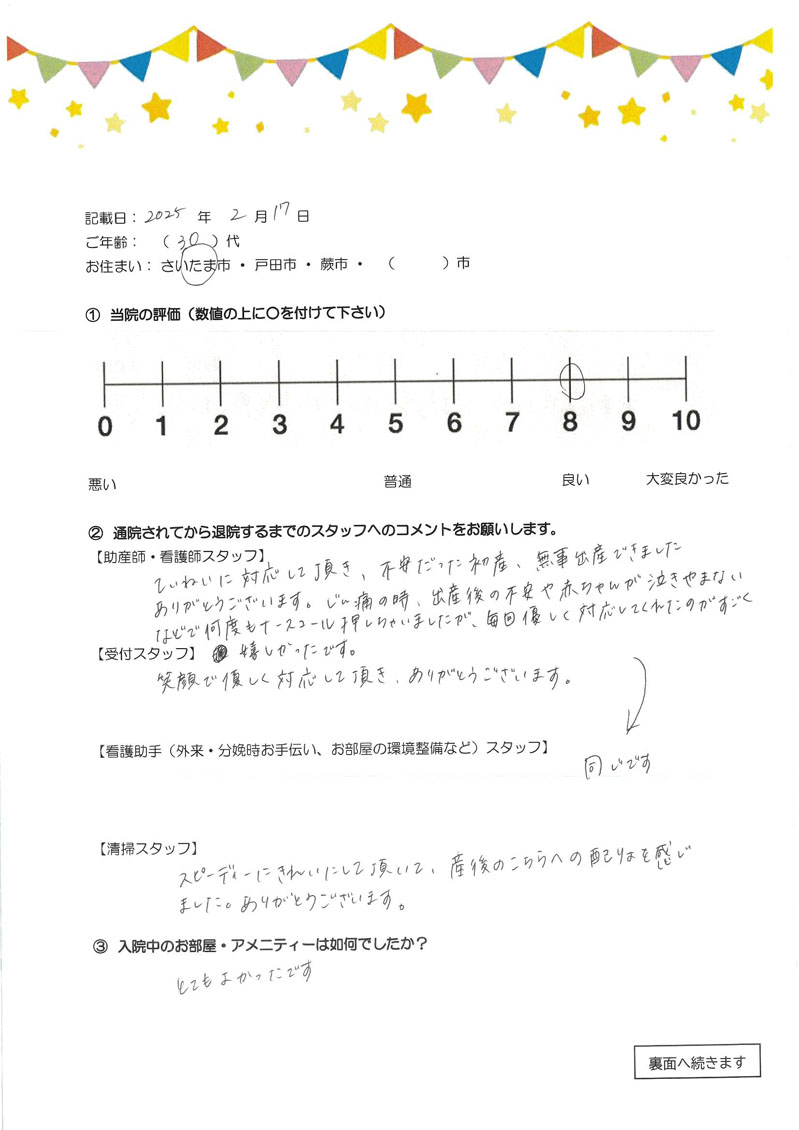 記載日： 2025 年 2 月 17 日
ご年齢： （ 30 ）代
お住まい： さいたま市 ・ 戸田市 ・ 蕨市 ・ （ ）市
① 当院の評価（数値の上に〇を付けて下さい）
0 1 2 3 4 5 6 7 8 9 10
悪い 普通 良い 大変良かった
② 通院されてから退院するまでのスタッフへのコメントをお願いします。
【助産師・看護師スタッフ】
ていねいに対応して頂き、不安だった初産、無事出産できました
ありがとうございます。じん痛の時、出産後の不安や赤ちゃんが泣きやまない
などで何度もナースコール押しちゃいましたが、毎回優しく対応してくれたのがすごく
嬉しかったです。
【受付スタッフ】
笑顔で優しく対応して頂き、ありがとうございます。
【看護助手（外来・分娩時お手伝い、お部屋の環境整備など）スタッフ】
同じです
【清掃スタッフ】
スピーディーにきれいにして頂いて、産後のこちらへの配りょを感じ
ました。ありがとうございます。
③ 入院中のお部屋・アメニティーは如何でしたか？
とてもよかったです
裏面へ続きます